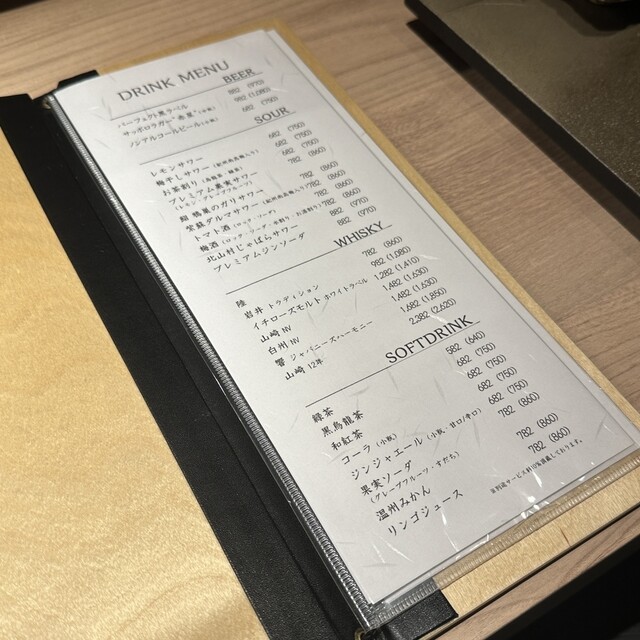 DRINK MENU
BEER
パーフェクト黒ラベル 882 (970)
サッポロラガー 赤星 982 (1,080)
ノンアルコールビール 682 (750)
SOUR
レモンサワー 682 (750)
梅干しサワー 682 (750)
お茶割り 682 (750)
プレミアム果実サワー 782 (860)
超 梅屋のガリサワー 782 (860)
ダルマサワー 782 (860)
トマト酒 882 (970)
梅酒 782 (860)
北山村じゃばらサワー 882 (970)
プレミアムジンソーダ 882 (970)
WHISKY
陸 782 (860)
岩井 トラディション 982 (1,080)
イチローズモルト ホワイトラベル 1,282 (1,410)
山崎 NV 1,482 (1,630)
白州 NV 1,482 (1,630)
響 ジャパニーズハーモニー 1,682 (1,850)
山崎 12年 2,382 (2,620)
SOFTDRINK
緑茶 582 (640)
黒烏龍茶 682 (750)
和紅茶 682 (750)
コーラ (小瓶) 682 (750)
ジンジャエール (小瓶、甘口/辛口) 682 (750)
果実ソーダ 782 (860)
(グレープフルーツ・すだち)
温州みかん 782 (860)
リンゴジュース 782 (860)
※別途サービス料10%頂戴しております。